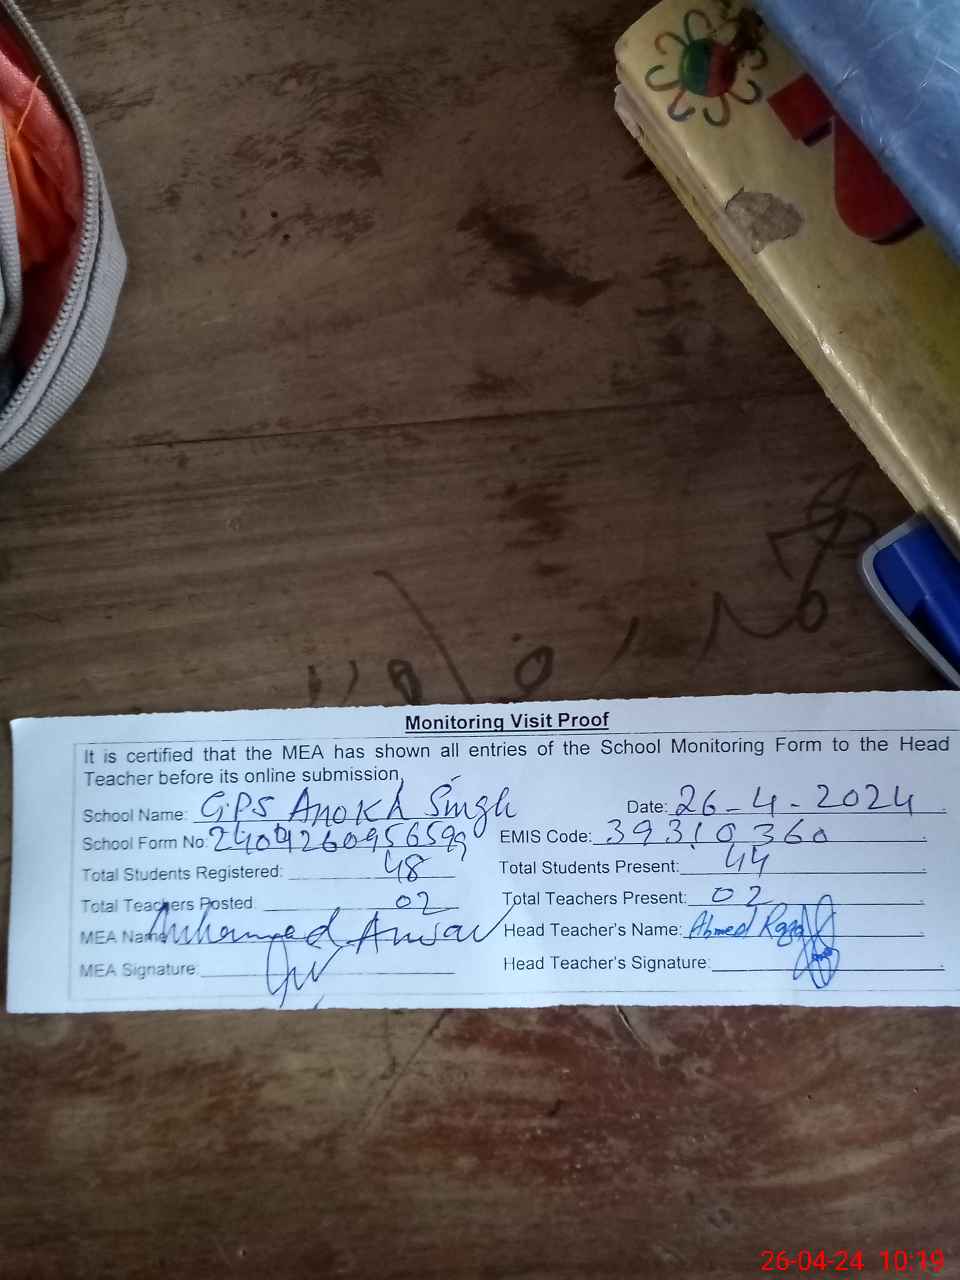 Monitoring Visit Proof
It is certified that the MEA has shown all entries of the School Monitoring Form to the Head
Teacher before its online submission,
School Name: GPS Anokh Singh Date: 26-4-2024
School Form No: EMIS Code: 39310360
Total Students Registered: 48 Total Students Present: 44
Total Teachers Posted: 02 Total Teachers Present: 02
MEA Name: Muhammad Head Teacher's Name: Ahmed Raza
MEA Signature: Head Teacher's Signature:
26-04-24 10:19